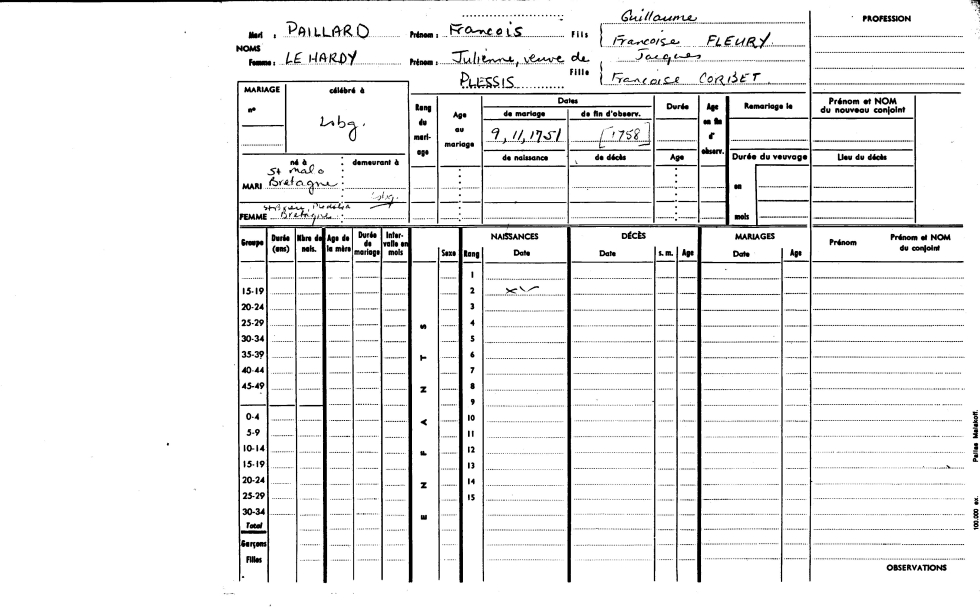 Guillaume
PROFESSION
Mari : PAILLARD Prénom : Francois Fils Francoise FLEURY
NOMS
Jacques
Femme : LE HARDY Prénom : Julienne, veuve de Fille
PLESSIS Francoise CORBET.
MARIAGE célébré à
Rang du mariage
Age au mariage
Dates
Durée
Age en fin d'observ.
Remariage le
Prénom et NOM du nouveau conjoint
n°
de mariage de fin d'observ.
Lsbg. 9, 11, 1751 [1758]
de naissance de décès Age Durée du veuvage Lieu du décès
né à demeurant à
St Malo
MARI Bretagne
en
Lsbg.
FEMME Bretagne
mois
Groupe Durée (ans) Nbre de nais. Age de la mère Durée de mariage Intervalle en mois
ENFANTS
Sexe Rang
NAISSANCES Date
DÉCÈS Date s. m. Age
MARIAGES Date Age
Prénom Prénom et NOM du conjoint
1
15-19 2
20-24 3
25-29 4
30-34 5
35-39 6
40-44 7
45-49 8
9
0-4 10
5-9 11
10-14 12
15-19 13
20-24 14
25-29 15
30-34
Total
Garçons
Filles
OBSERVATIONS
100.000 ex. Pallas Malakoff.